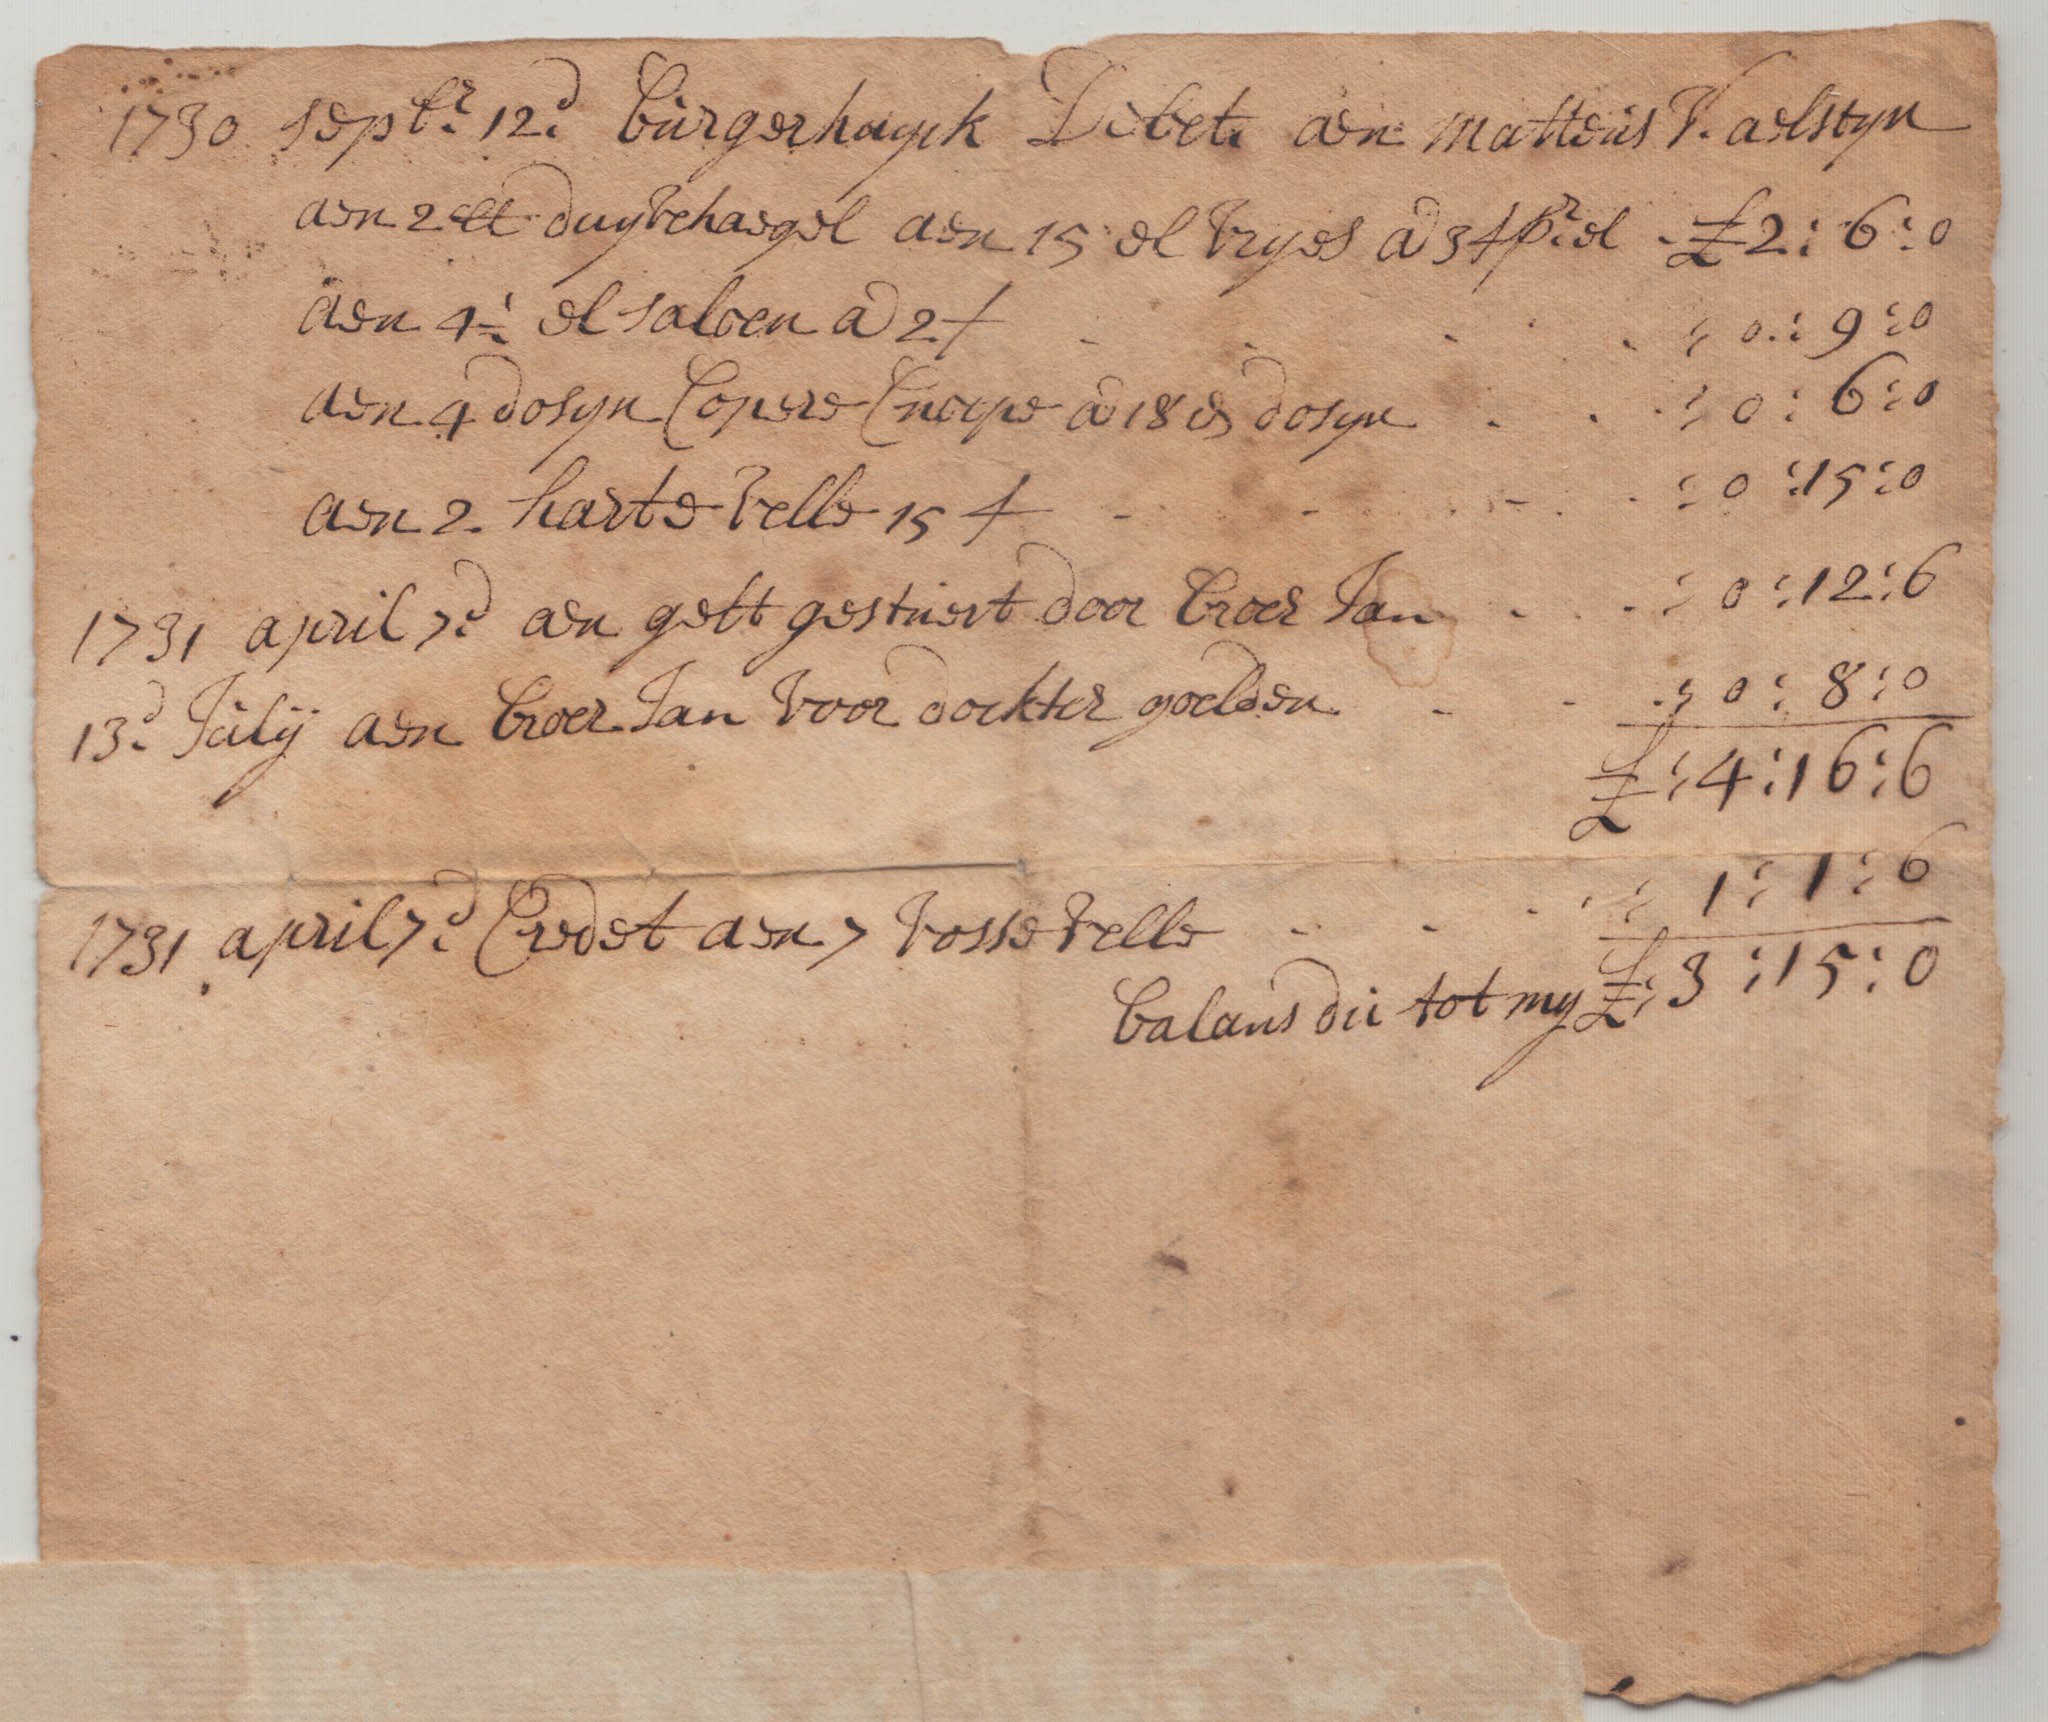 1730 septr 12d Burgerhuyk Debet aen Matteus V. aelstyn
aen 2 ℔ duyvehaegel aen 15 el vryes a 3/ pr el - £ 2 : 6 : 0
aen 4½ el saloen a 2/ . . . . : 0 : 9 : 0
aen 4 dosyn Copere Cnope a 18 d dosyn . . . : 0 : 6 : 0
aen 2 harte velle 15/ - - - - . : 0 : 15 : 0
1731 april 7d aen gelt gestuert door broer Jan . . . : 0 : 12 : 6
13d Julÿ aen broer Jan voor dockter goelden . . . : 0 : 8 : 0
£ : 4 : 16 : 6
1731 april 7d Credet aen 7 vosse velle . . . : 1 : 1 : 6
balans du tot my £ : 3 : 15 : 0